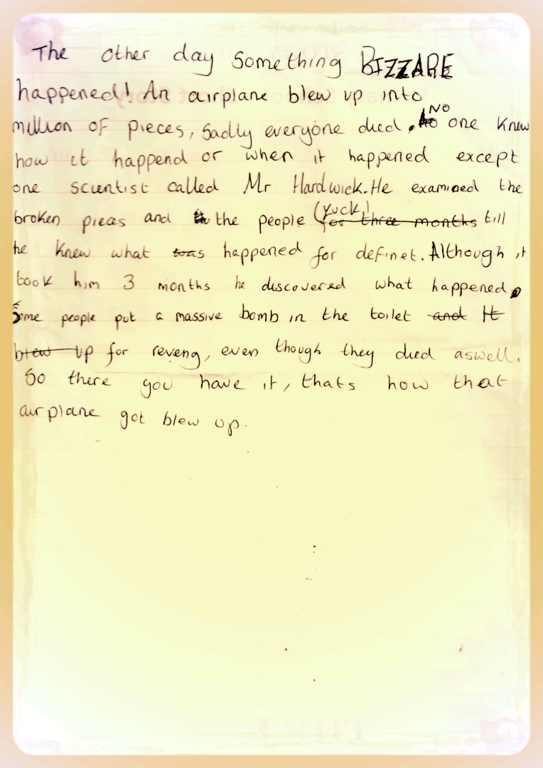 The other day something BIZZARE
happened! An airplane blew up into
million of pieces, sadly everyone died. NO one knew
how it happend or when it happened except
one scientist called Mr Hardwick. He examined the
broken pieces and the people (yuck!) for three months till
he knew what was happened for definet. Although it
took him 3 months he discovered what happened.
Some people put a massive bomb in the toilet and It
blew up for reveng, even though they died aswell.
So there you have it, thats how that
airplane got blew up.